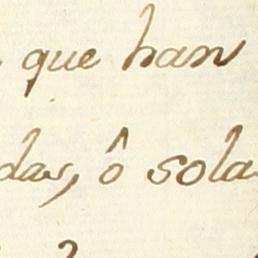 que han
das, ô sola
?